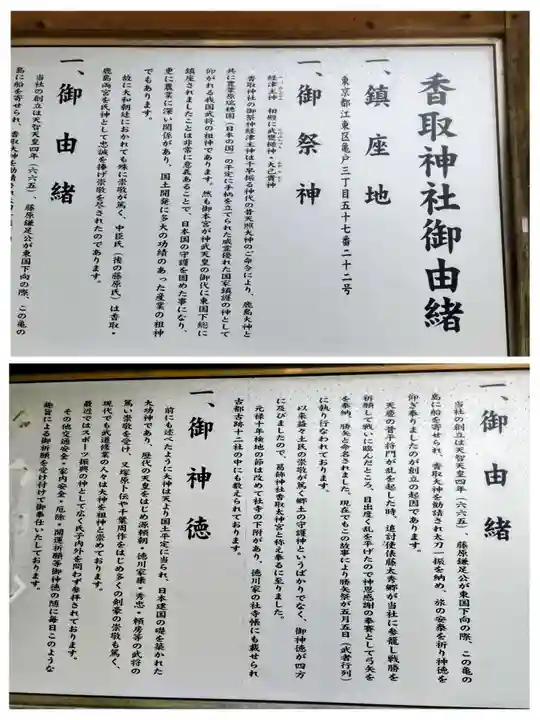 香取神社御由緒
一、鎮座地
東京都江東区亀戸三丁目五十七番二十二号
一、御祭神
経津主神 相殿に武甕槌神・大己貴神
香取神社の御祭神経津主神は千早振る神代の昔天照大神のご命令により、鹿島大神と
共に豊葦原瑞穂国(日本の国)の平定に手柄を立てられた威霊優れた国家鎮護の神として
仰がれる我国武将の祖神であります。然も御本宮が神武天皇の御代に東国下総に
鎮座されましたことは非常に意義あることで、日本国の守護を固めた事になり、
更に農業に深い関係があり、国土開発に多大の功績のあった産業の祖神
でもあります。
故に大和朝廷におかれても殊に崇敬が篤く、中臣氏(後の藤原氏)は香取・
鹿島両宮を氏神として忠誠を捧げ崇敬を尽されたのであります。
一、御由緒
当社の創立は天智天皇四年(六六五)、藤原鎌足公が東国下向の際、この亀の
島に船を寄せられ、香取大神を勧請され
一、御由緒
当社の創立は天智天皇四年(六六五)、藤原鎌足公が東国下向の際、この亀の
島に船を寄せられ、香取大神を勧請され太刀一振を納め、旅の安泰を祈り神徳を
仰ぎ奉りましたのが創立の起因であります。
天慶の昔平将門が乱を起した時、追討使俵藤太秀郷が当社に参籠し戦勝を
祈願して戦いに臨んだところ、目出度く乱を平げたので神恩感謝の奉賽として弓矢を
を奉納、勝矢と命名されました。現在でもこの故事により勝矢祭が五月五日(武者行列)
に執り行なわれております。
以来益々土民の崇敬が篤く郷土の守護神というばかりでなく、御神徳が四方
に及びましたので、葛飾神社香取太神宮と称え奉るに至りました。
元禄十年検地の節は改めて社寺の下附があり、徳川家の社寺帳にも載せられ
古都古跡十二社の中にも数えられております。
一、御神徳
前にも述べたように大神は天より国土平定に当られ、日本建国の礎を築かれた
大功神であり、歴代の天皇をはじめ源頼朝・徳川家康・秀忠・頼房等の武将の
篤い崇敬を受け、又塚原卜伝や千葉周作をはじめ多くの剣豪の崇敬も篤く、
現代でも武道修業の人々は大神を祖神と崇めております。
最近ではスポーツ振興の神として広く氏子内外を問わず参拝されております。
その他交通安全・家内安全・厄除・開運祈願等御神徳の随に毎日このような
趣旨による御祈願を受け付けて御奉仕いたしております。